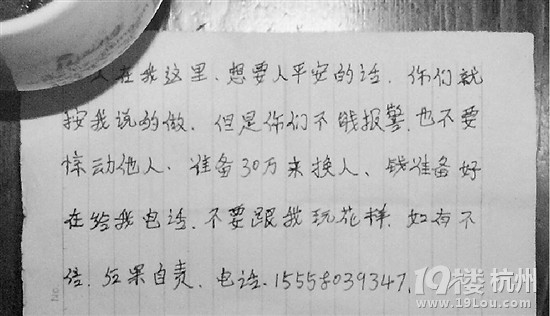 人在我这里.想要人平安的话.你们就
按我说的做.但是你们不能报警.也不要
惊动他人.准备30万来换人.钱准备好
在给我电话.不要跟我玩花样.如有不
信.后果自责.电话.15558039347.
No.
19楼 杭州
www.19lou.com